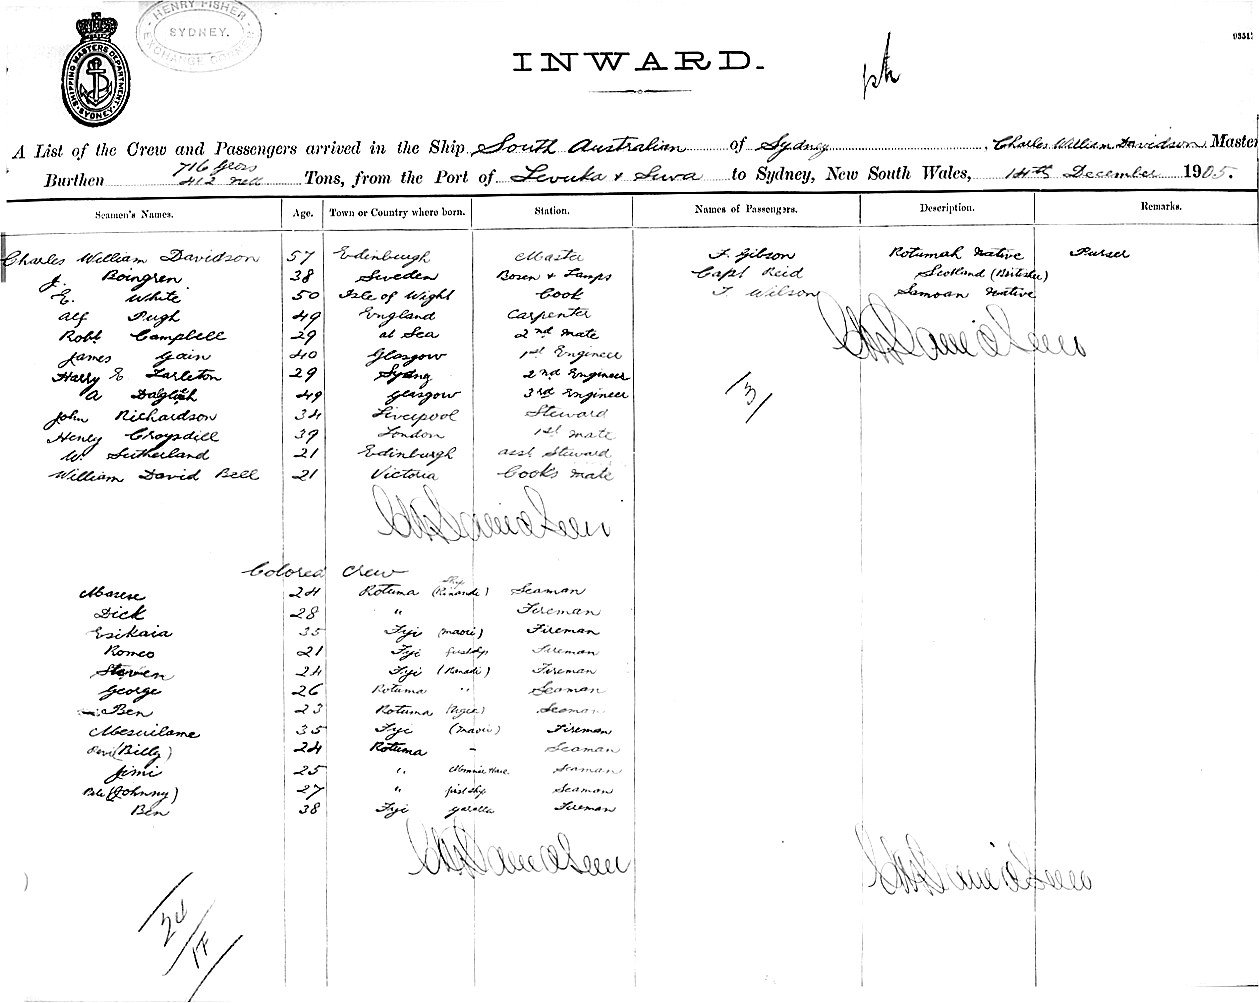 HENRY FISHER
SYDNEY.
EXCHANGE CORNER
SHIPPING MASTERS DEPARTMENT
SYDNEY
INWARD.
A List of the Crew and Passengers arrived in the Ship South Australian of Sydney, Charles William Davidson, Master
Burthen 716 Gross
412 nett Tons, from the Port of Levuka & Suva to Sydney, New South Wales, 14th December 1905.
Seamen's Names. Age. Town or Country where born. Station. Names of Passengers. Description. Remarks.
Charles William Davidson 57 Edinburgh Master F. Gibson Rotumah Native Purser
J. Boingren 38 Sweden Bosen & Lamps Capt Reid Scotland (British)
E. White 50 Isle of Wight Cook T Wilson Samoan Native
Alf Pugh 49 England Carpenter
Robt Campbell 29 at Sea 2nd mate
James Gain 40 Glasgow 1st Engineer
Harry E Tarleton 29 Sydney 2nd Engineer
A Dalglish 49 Glasgow 3rd Engineer
John Richardson 34 Liverpool Steward
Henry Croysdill 39 London 1st mate
W. Sutherland 21 Edinburgh asst Steward
William David Bell 21 Victoria Cooks mate
3
Colored Crew
Marese 24 Rotuma Seaman
Dick 28 " Fireman
Esikaia 35 Fiji (maori) Fireman
Romeo 21 Fiji first ship Fireman
Steven 24 Fiji Fireman
George 26 Rotuma " Seaman
Ben 23 Rotuma Seaman
Mesuilame 35 Fiji (maori) Fireman
(Billy) 24 Rotuma - Seaman
Jimi 25 " Seaman
(Johnny) 27 " first ship Seaman
Ben 38 Fiji Fireman
24